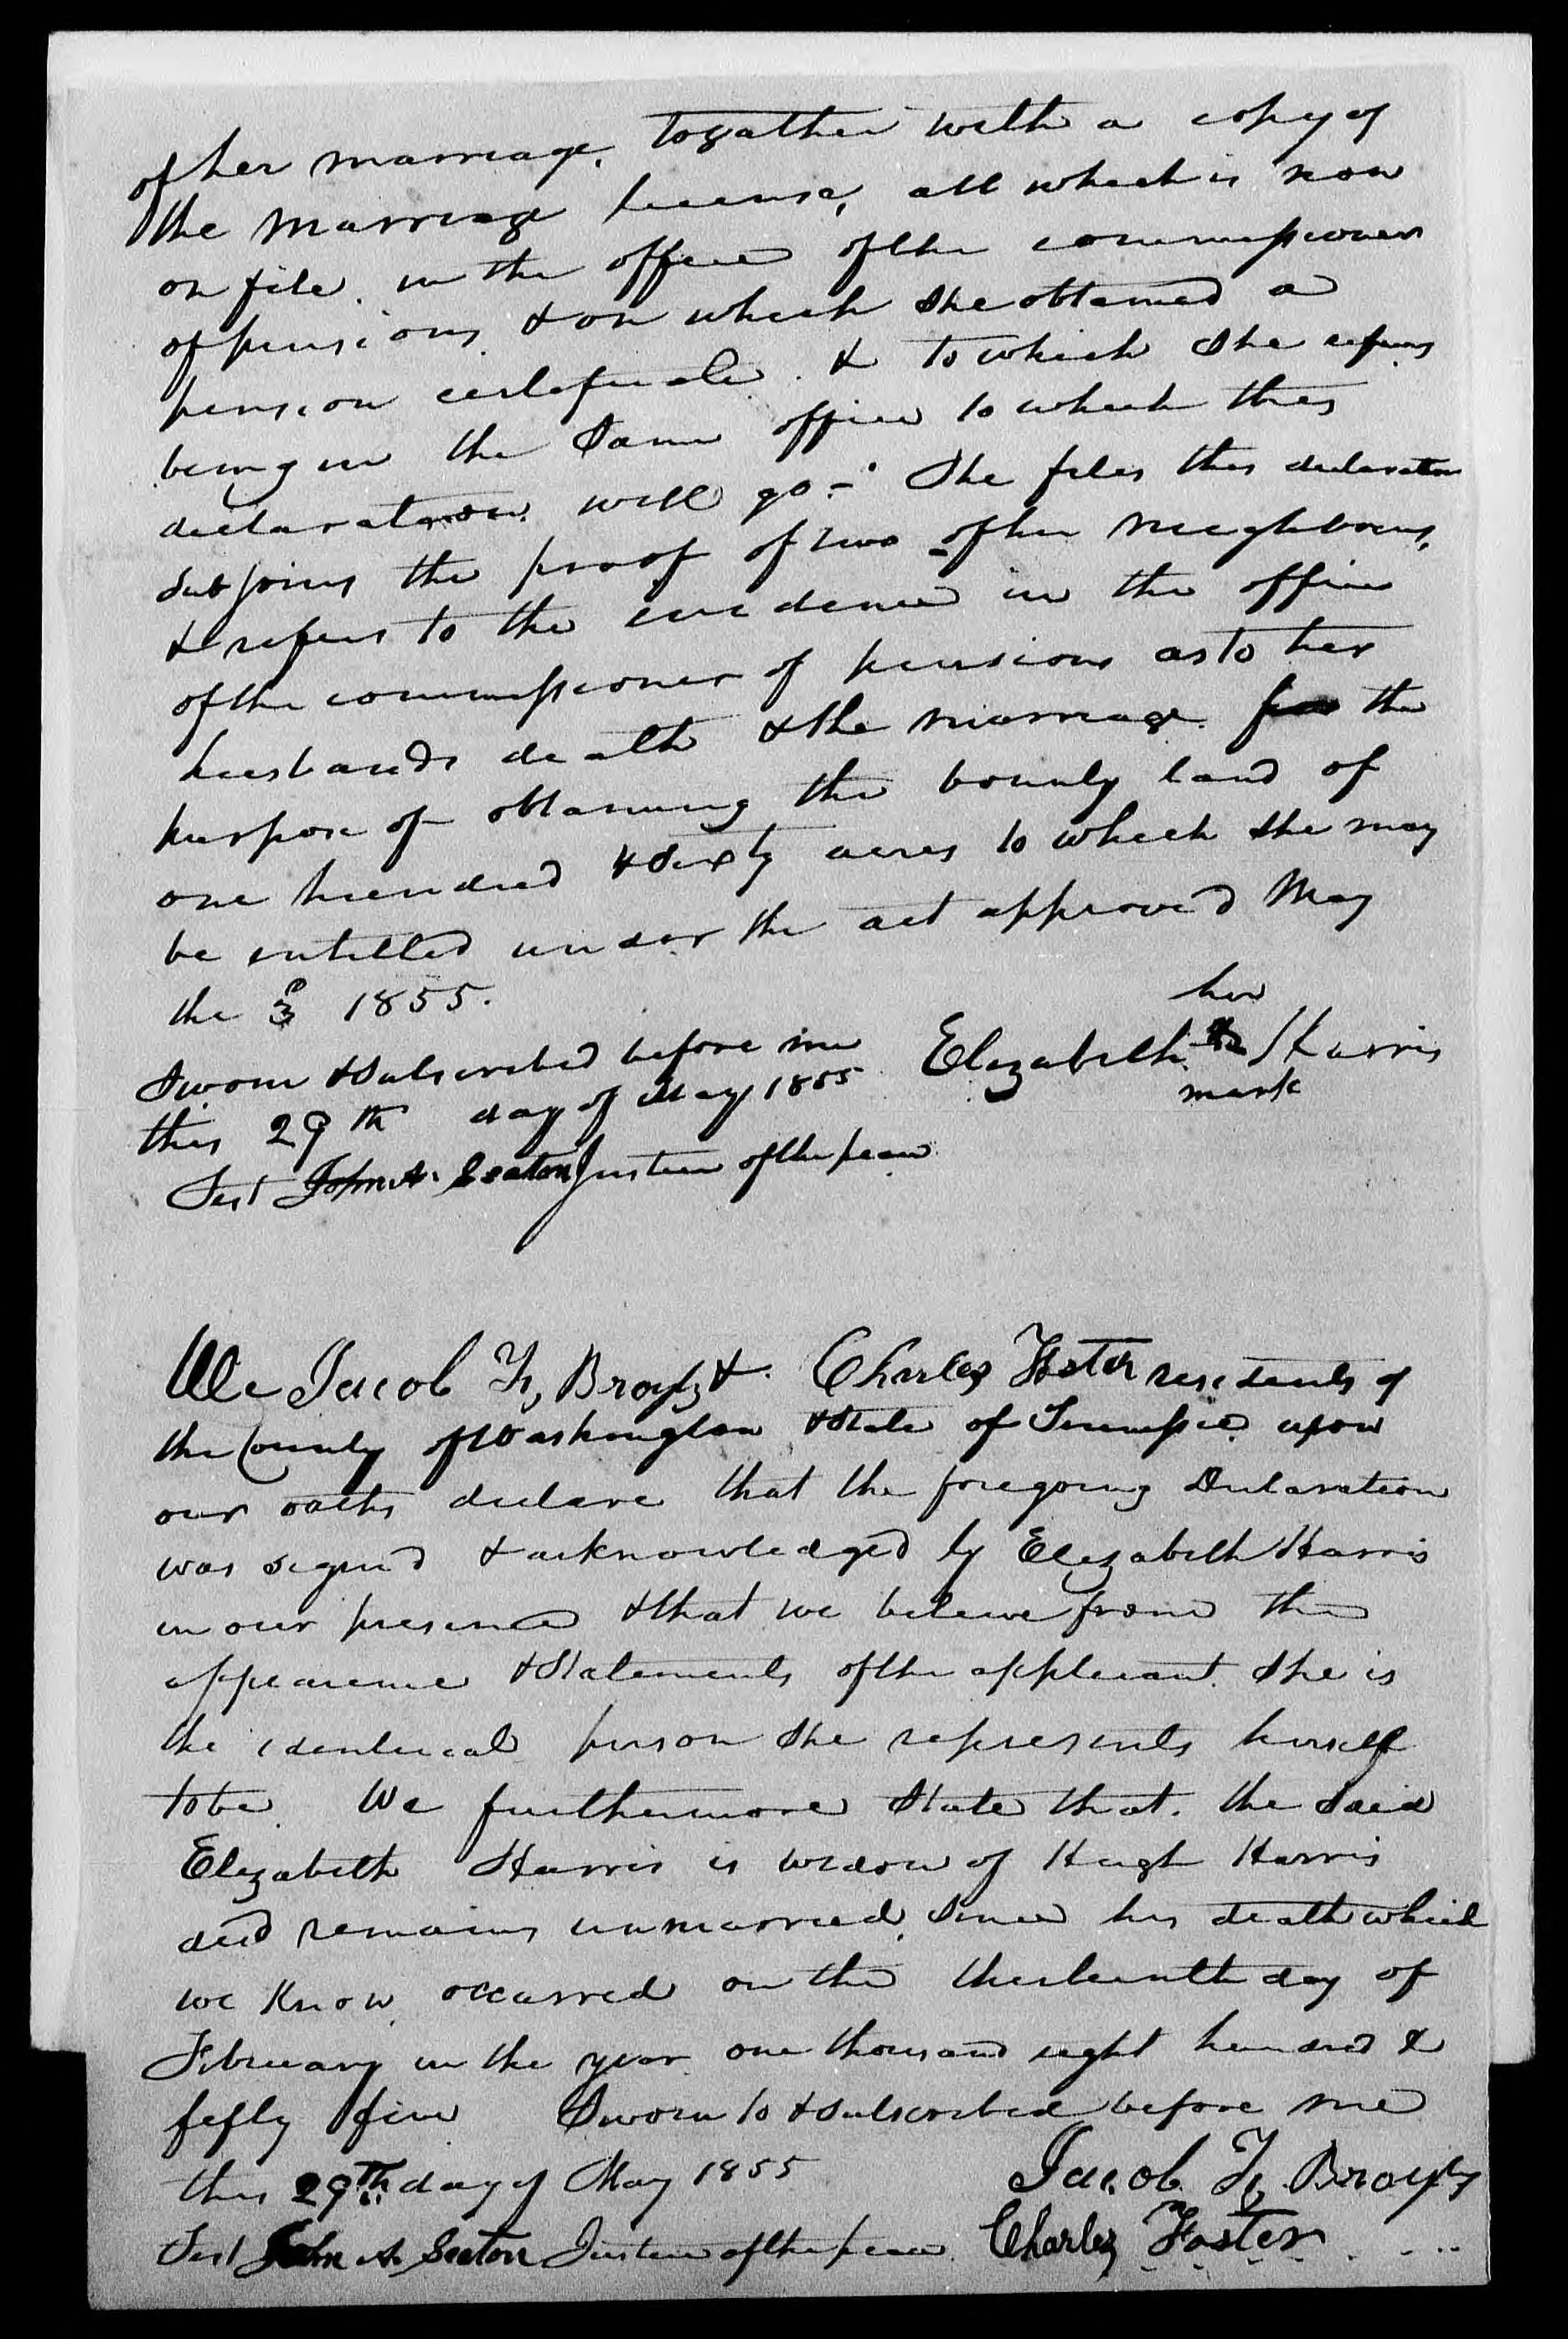 of her marriage, togather with a copy of
the marriage license, all which is now
on file in the office of the commissioner
of pensions & on which she obtained a
pension certificate & to which she refers
being in the same office to which this
declaration will go - She files this declaration
subjoins the proof of two of her neighbours,
& refers to the evidence in the office
of the commissioner of pensions as to her
husbands death & the marriage for the
purpose of obtaining the bounty land of
one hundred & sixty acres to which she may
be entitled under the act approved May
the 3 1855.
her
Elizabeth Harris
mark
Sworn & subscribed before me
this 29th day of May 1855
Test John A. Seaton Justice of the peace
We Jacob F, Broyls & Charles Foster residents of
the County of Washington & State of Tennessee upon
our oaths declare that the foregoing Declaration
was signed & acknowledged by Elizabeth Harris
in our presence & that we believe from the
appearance & statements of the applicant she is
the identical person she represents herself
to be We furthermore State that the said
Elizabeth Harris is widow of Hugh Harris
decd remains unmarried, since his death which
we know occurred on the thirteenth day of
February in the year one thousand eight hundred &
fifty five Sworn to & subscribed before me
this 29th day of May 1855
Jacob F, Broyls
Test John A. Seaton Justice of the peace Charles Foster